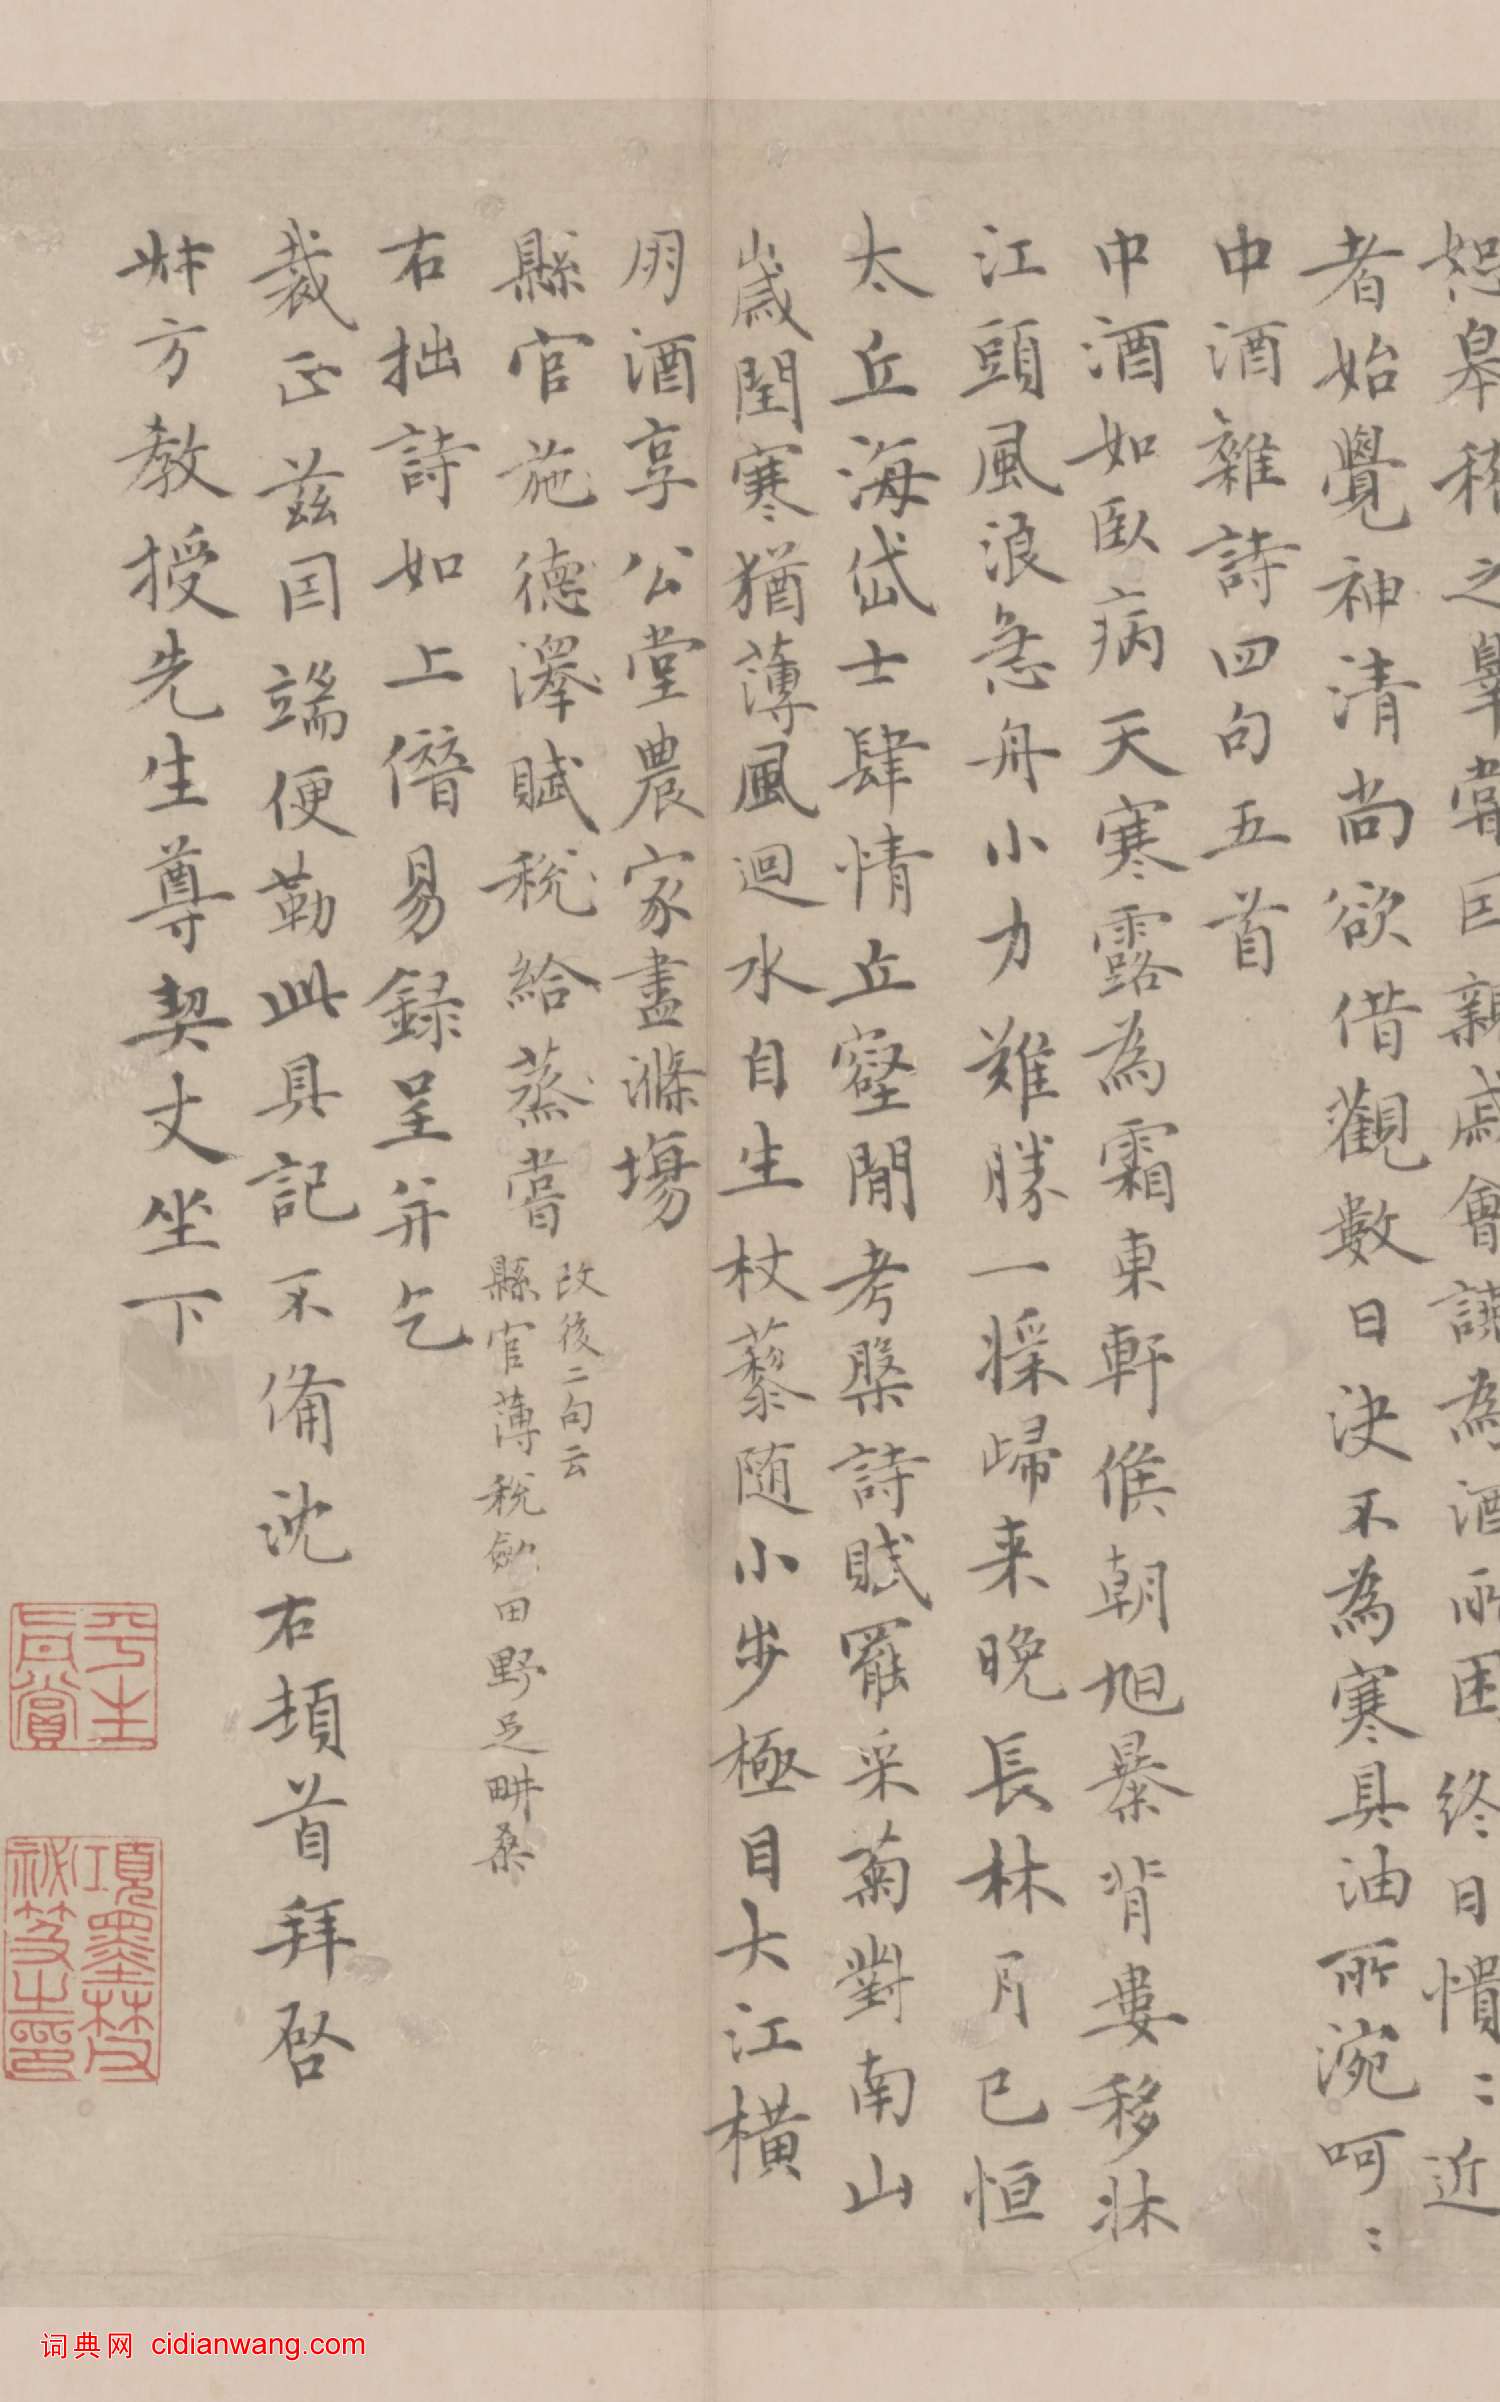 恕皋稽之辜嘗因親戚會讌為酒所困終日憒〻近
者始覺神清尚欲借觀數日決不為寒具油所涴呵〻
中酒雜詩四句五首
中酒如臥病天寒露為霜東軒候朝旭暴背婁移牀
江頭風浪急舟小力難勝一槳歸来晚長林月已恒
太丘海岱士肆情丘壑間考槃詩賦罷采菊對南山
歲閏寒猶薄風迴水自生杖藜随小步極目大江橫
朋酒享公堂農家盡滌場
縣官施德澤賦稅給蒸嘗
改後二句云
縣官薄稅斂田野足畊桑
右拙詩如上僭易録呈并乞
裁正茲因端便勒此具記不備沈右頓首拜啓
艸方教授先生尊契丈坐下
平生真賞
項墨林父
祕笈之印
词典网 cidianwang.com